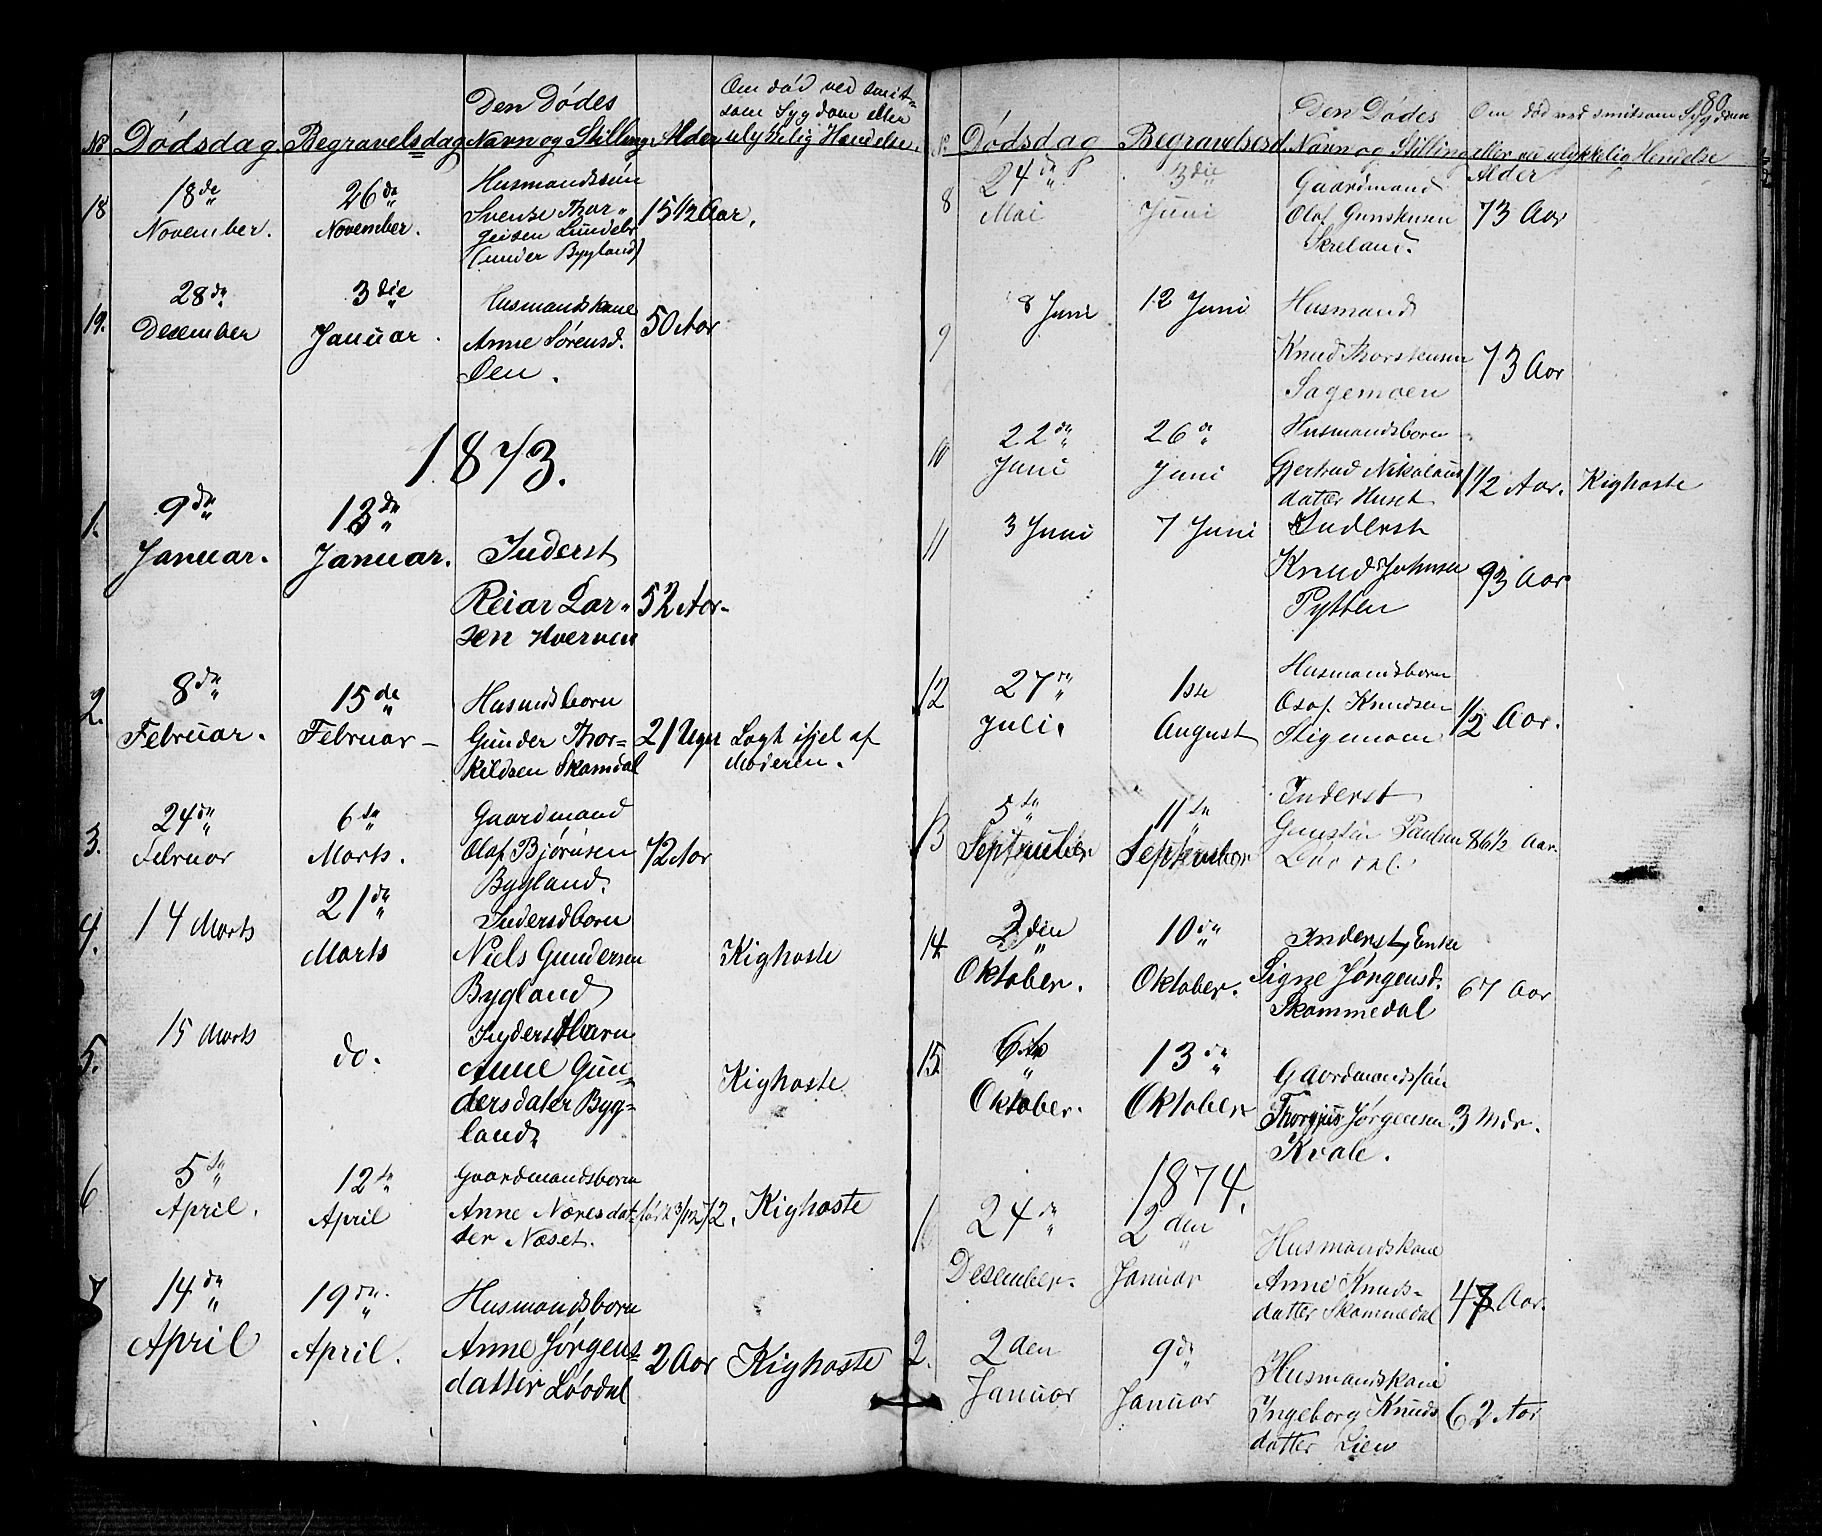 Den Dødes
Om død ved smit-
som Sygdom eller
No Dødsdag. Begravelsdag Navn og Stilling. Alder ulykkelig Hendelse.
18 18de November. 26de November. Husmandssøn
Svenke Thor-
geisen
(under Bygland) 15 1/2 Aar.
19. 28de December 3die Januar. Husmandskone
Anne Sørensd.
Øen. 50 Aar
1873.
1. 9de Januar. 13de Januar. Inderst
Reiar Lar-
sen Hverven 52 Aar-
2. 8de Februar. 15de Februar- Husmdsbarn
Gunder Thor-
kildsen Skamdal 21 Uger Lagt ihjel af
Moderen.
3. 24de Februar 6te Marts. Gaardmand
Olaf Bjørnsen
Bygland. 72 Aar
4. 14 Marts 21de Marts Indersdbarn
Niels Gundersen
Bygland Kighoste
5. 15 Marts do. Inderstbarn
Anne Gun-
dersdater Byg-
land Kighoste
6 5te April. 12te April Gaardmandsbarn
Anne Næresdat-
ter Næset. Kighoste
7 14de April 19de April. Husmandsbarn
Anne Jørgens-
datter Løvdal 2 Aar Kighoste
80
Den Dødes
Om død ved smitsom Sygdom
No Dødsdag Begravelsesd. Navn og Stilling eller ved ulykkelig Hendelse
Alder
8 24de Mai 3die Juni Gaardmand
Olaf
Skreland. 73 Aar
9 8 Juni 12 Juni Husmand
Knud Thorstensen
Sagemoen 73 Aar
10 22de Juni 26de Juni Husmandsbarn
Gjertrud Nikolaus
datter Huset 1 1/2 Aar. Kighoste
11 3 Juni 7 Juni Inderst
Knud Johnsen
Pytten 93 Aar
12 27de Juli. 1ste August Husmandsbarn
Knudsen
1/2 Aar.
13 5te September 11te September Inderst
Paulsen
86 1/2 Aar.
14 2den Oktober. 10de Oktober. Inderst, Enke
Signe Jørgensd.
Skammedal 67 Aar
15 6te Oktober. 13de Oktober Gaardmandssøn
Thorgjus Jørgensen
Kvale. 3 Mdr.
1874.
1 24de Desember. 2den Januar Husmandskone
Anne Knuds-
datter Skammedal 47 Aar.
2. 2den Januar 9de Januar Husmandskone
Ingeborg Knuds
datter Lien 62 Aar